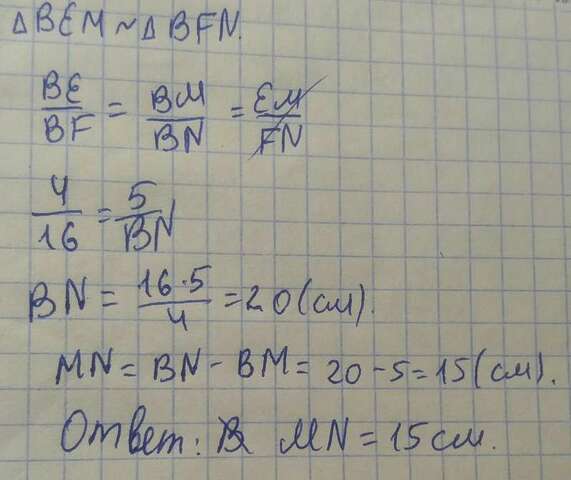 △BEM ~ △BFN.
BE/BF = BM/BN = EM/FN
4/16 = 5/BN
BN = 16·5/4 = 20 (см).
MN = BN - BM = 20 - 5 = 15 (см).
Ответ: MN = 15 см.